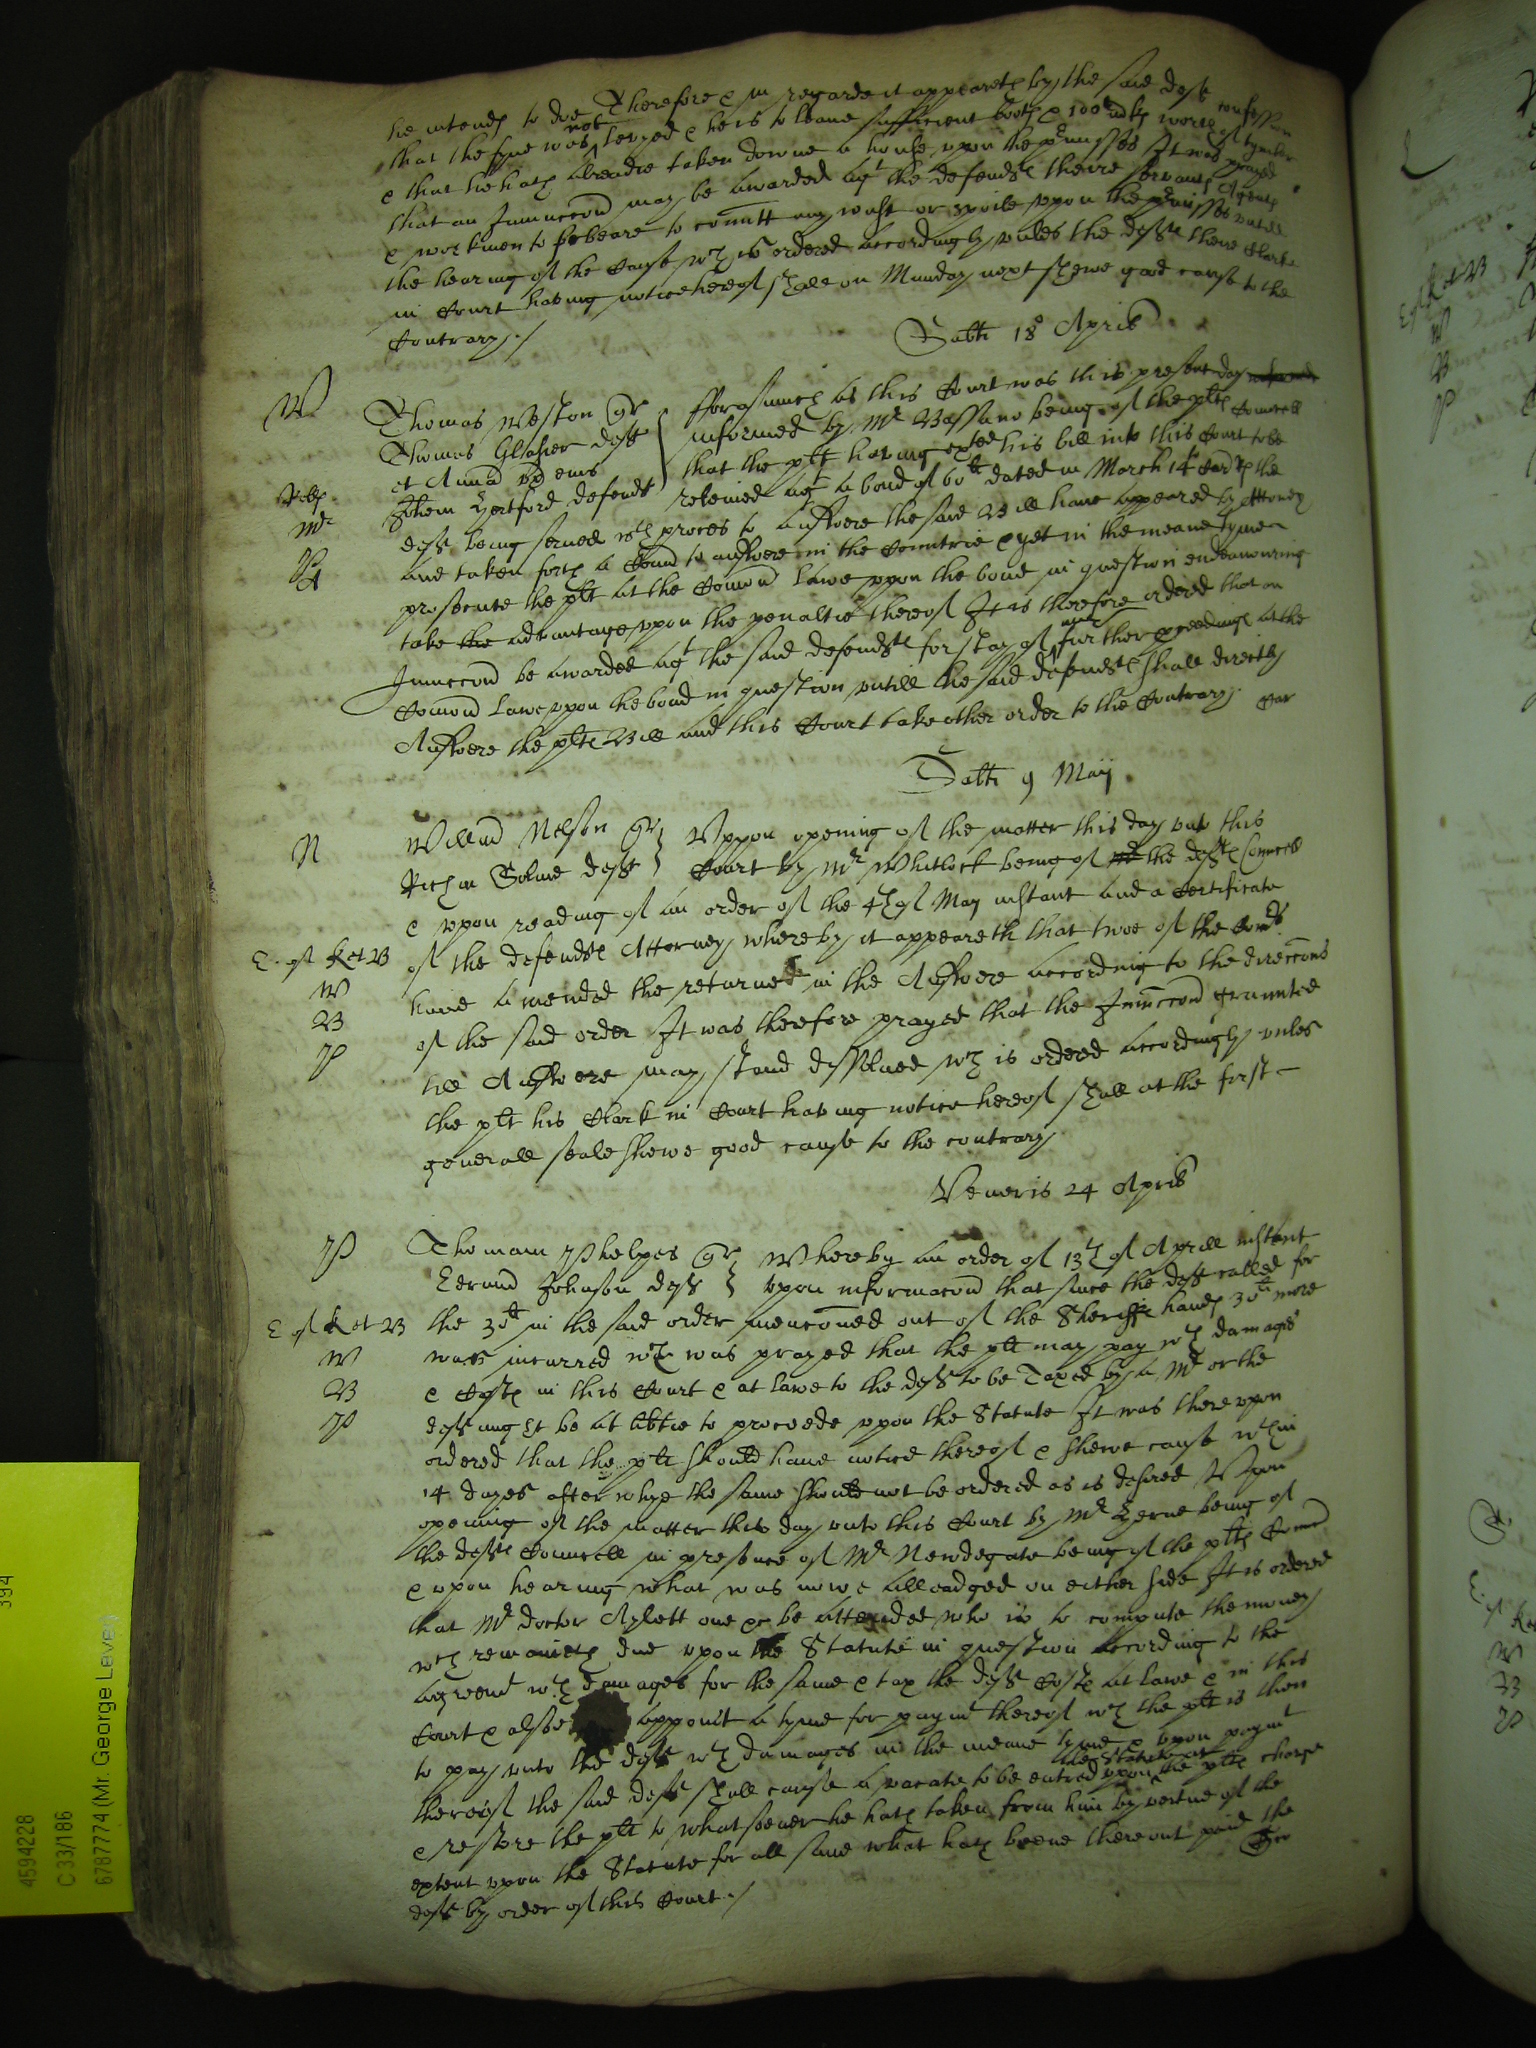 he intends to doe Therefore & in regarde it appeareth by the said deft confession
that the fyne was not levyed & he is to leave sufficient & 100li worth of tymber
& that he hath alreadie taken downe a house upon the pr[e]misses It was prayed
that an Iniunccon may be awarded agt the defendts theire servants Agents
& workmen to forbeare to comitt any wast or spoile upon the pr[e]misses untill
the hearing of the Cause wch is ordered accordingly unles the defts theire Clarke
in Court having notice hereof shall on Munday next shewe good cause to the
Contrary./
Sabti 18o Aprilis
W
Thomas Weston qr
Thomas Glasier deft
et Anna ux eius
Hertford defendts
fforasmuch as this Court was this present day
informed by Mr Bassano being of the plts Councell
that the plt having exhibited his bill into this Court to be
releived agt a bond of 60li dated in March 14 the
defts being served wth proces to Answere the said Bill have appeared by Attorney
and taken forth a Comn to answere in the Countrie & yet in the meane tyme
prosecute the plt at the Comon Lawe uppon the bond in question endeavouring
take the advantage uppon the penaltie thereof It is therefore ordered that an
Iniunccon be awarded agt the said defendts for stay of further proceedings at the
Comon Lawe uppon the bond in question untill the said defendts shall directly
Answere the plts Bill and this Court take other order to the Contrary
Sabti 9 May
N
Willm Nelson qr
Rich deft
Uppon opening of the matter this day unto this
Court by Mr Whitlock being of the defts Councell
& upon reading of an order of the 4th of May instant and a Certificate
E. of K et B
of the defendts Attorney whereby it appeareth that twoe of the Comrs
W
have amended the returne in the Answere according to the direccons
B
of the said order It was therefore prayed that the Iniunccon graunted
P
till Answere may stand dissolved wch is ordered accordingly unles
the plt his Clark in Court having notice hereof shall at the first
generall seale shewe good cause to the contrary
Veneris 24 Aprilis
P
Thomam Phelpes qr
Edrund Johnson deft
Whereby an order of 13th of Aprill instant
upon informacon that since the deft called for
E of K et B
the 30li in the said order menconed out of the Sheriffs hands 30li more
W
was incurred wch was prayed that the plt may pay wth damages
B
& Costs in this Court & at lawe to the deft to be Taxed by a Mr or the
P
deft might be at libtie to proceede upon the Statute It was thereupon
ordered that the plt should have notice thereof & shewe cause wthin
14 dayes after whye the same should not be ordered as is desired Upon
opening of the matter this day unto this Court by Mr Herne being of
the defts Councell in presence of Mr Newdegate being of the plts Councell
& upon hearing what was nowe alleadged on either side It is ordered
that Mr doctor Aylett one &c be attended who is to compute the money
wch remaineth due upon the Statute in question according to the
agreemt wth damages for the same & tax the deft Costs at lawe & in this
Court & alsoe appoint a tyme for paymt thereof wch the plt is then
to pay unto the deft wth damages in the meane tyme & upon paymt
thereof the said deft shall cause a vacate to be entred upon the Statute at the plts charge
& restore the plt to whatsoever he hath taken from him by vertue of the
extent upon the Statute for all save what hath beene thereout paid the
deft by order of this Court./
394
4594228
C 33/186
6787774 (Mr. George Lever)